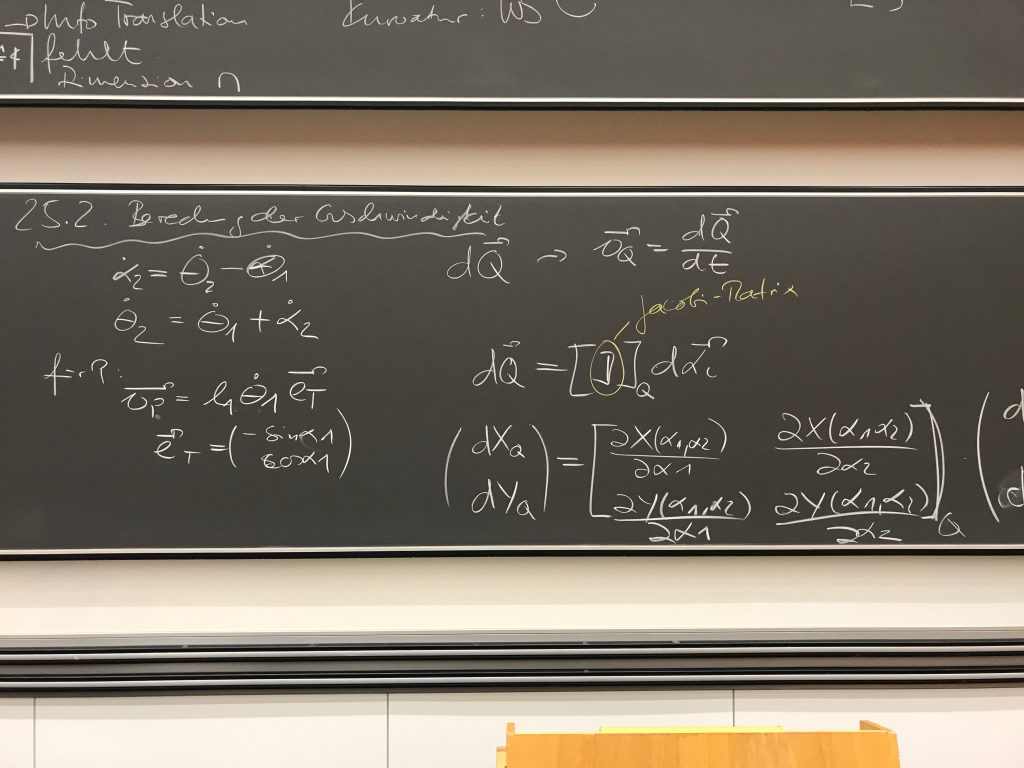 → Info Translation
fehlt
Dimension n
25.2. Berechnung der Geschwindigkeit
α̇₂ = Θ̇₂ − Θ̇₁
Θ̇₂ = Θ̇₁ + α̇₂
für P:
v⃗_P = l₁ Θ̇₁ e⃗_T
e⃗_T = (−sinα1
cosα1)
dQ⃗ → v⃗_Q = dQ⃗/dt
Jacobi-Matrix
dQ⃗ = [J]_Q dα⃗ᵢ
(dX_Q) = [∂X(α₁,α₂)/∂α1 ∂X(α₁,α₂)/∂α2] · (d
(dY_Q) [∂Y(α₁,α₂)/∂α1 ∂Y(α₁,α₂)/∂α2]_Q (d